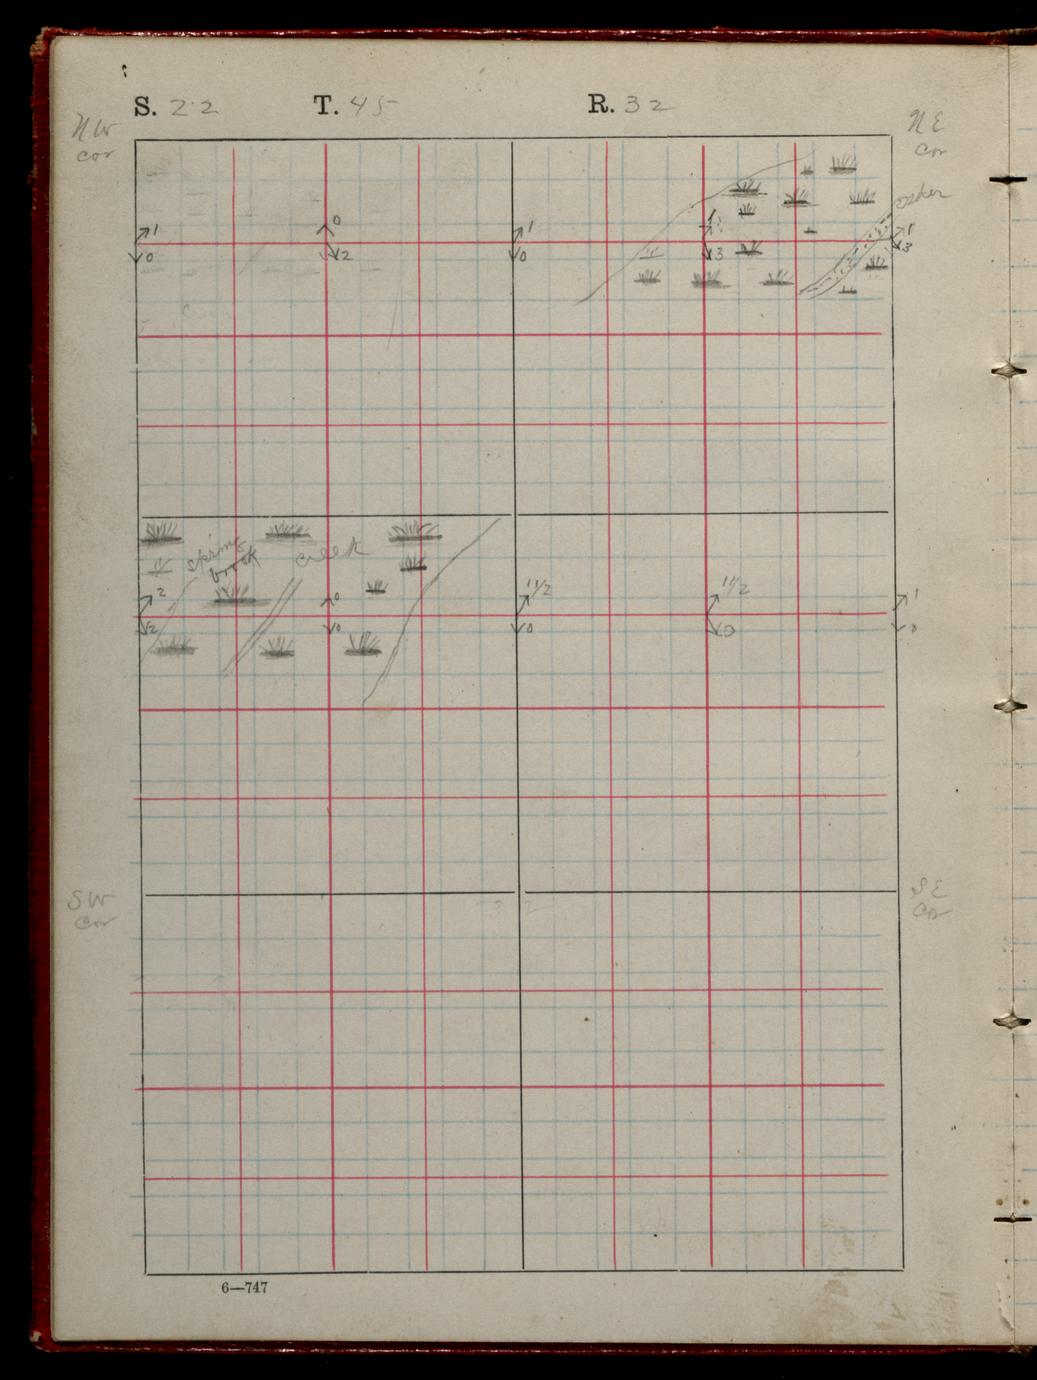 S. 22 T. 45 R. 32
NW
cor
NE
cor
esker
1 0 1 1
0 2 0 3 3
spring
brook
creek
2 0 1 1/2 1 1/2 1
2 0 0 0 0
SW
cor
SE
cor
6—747